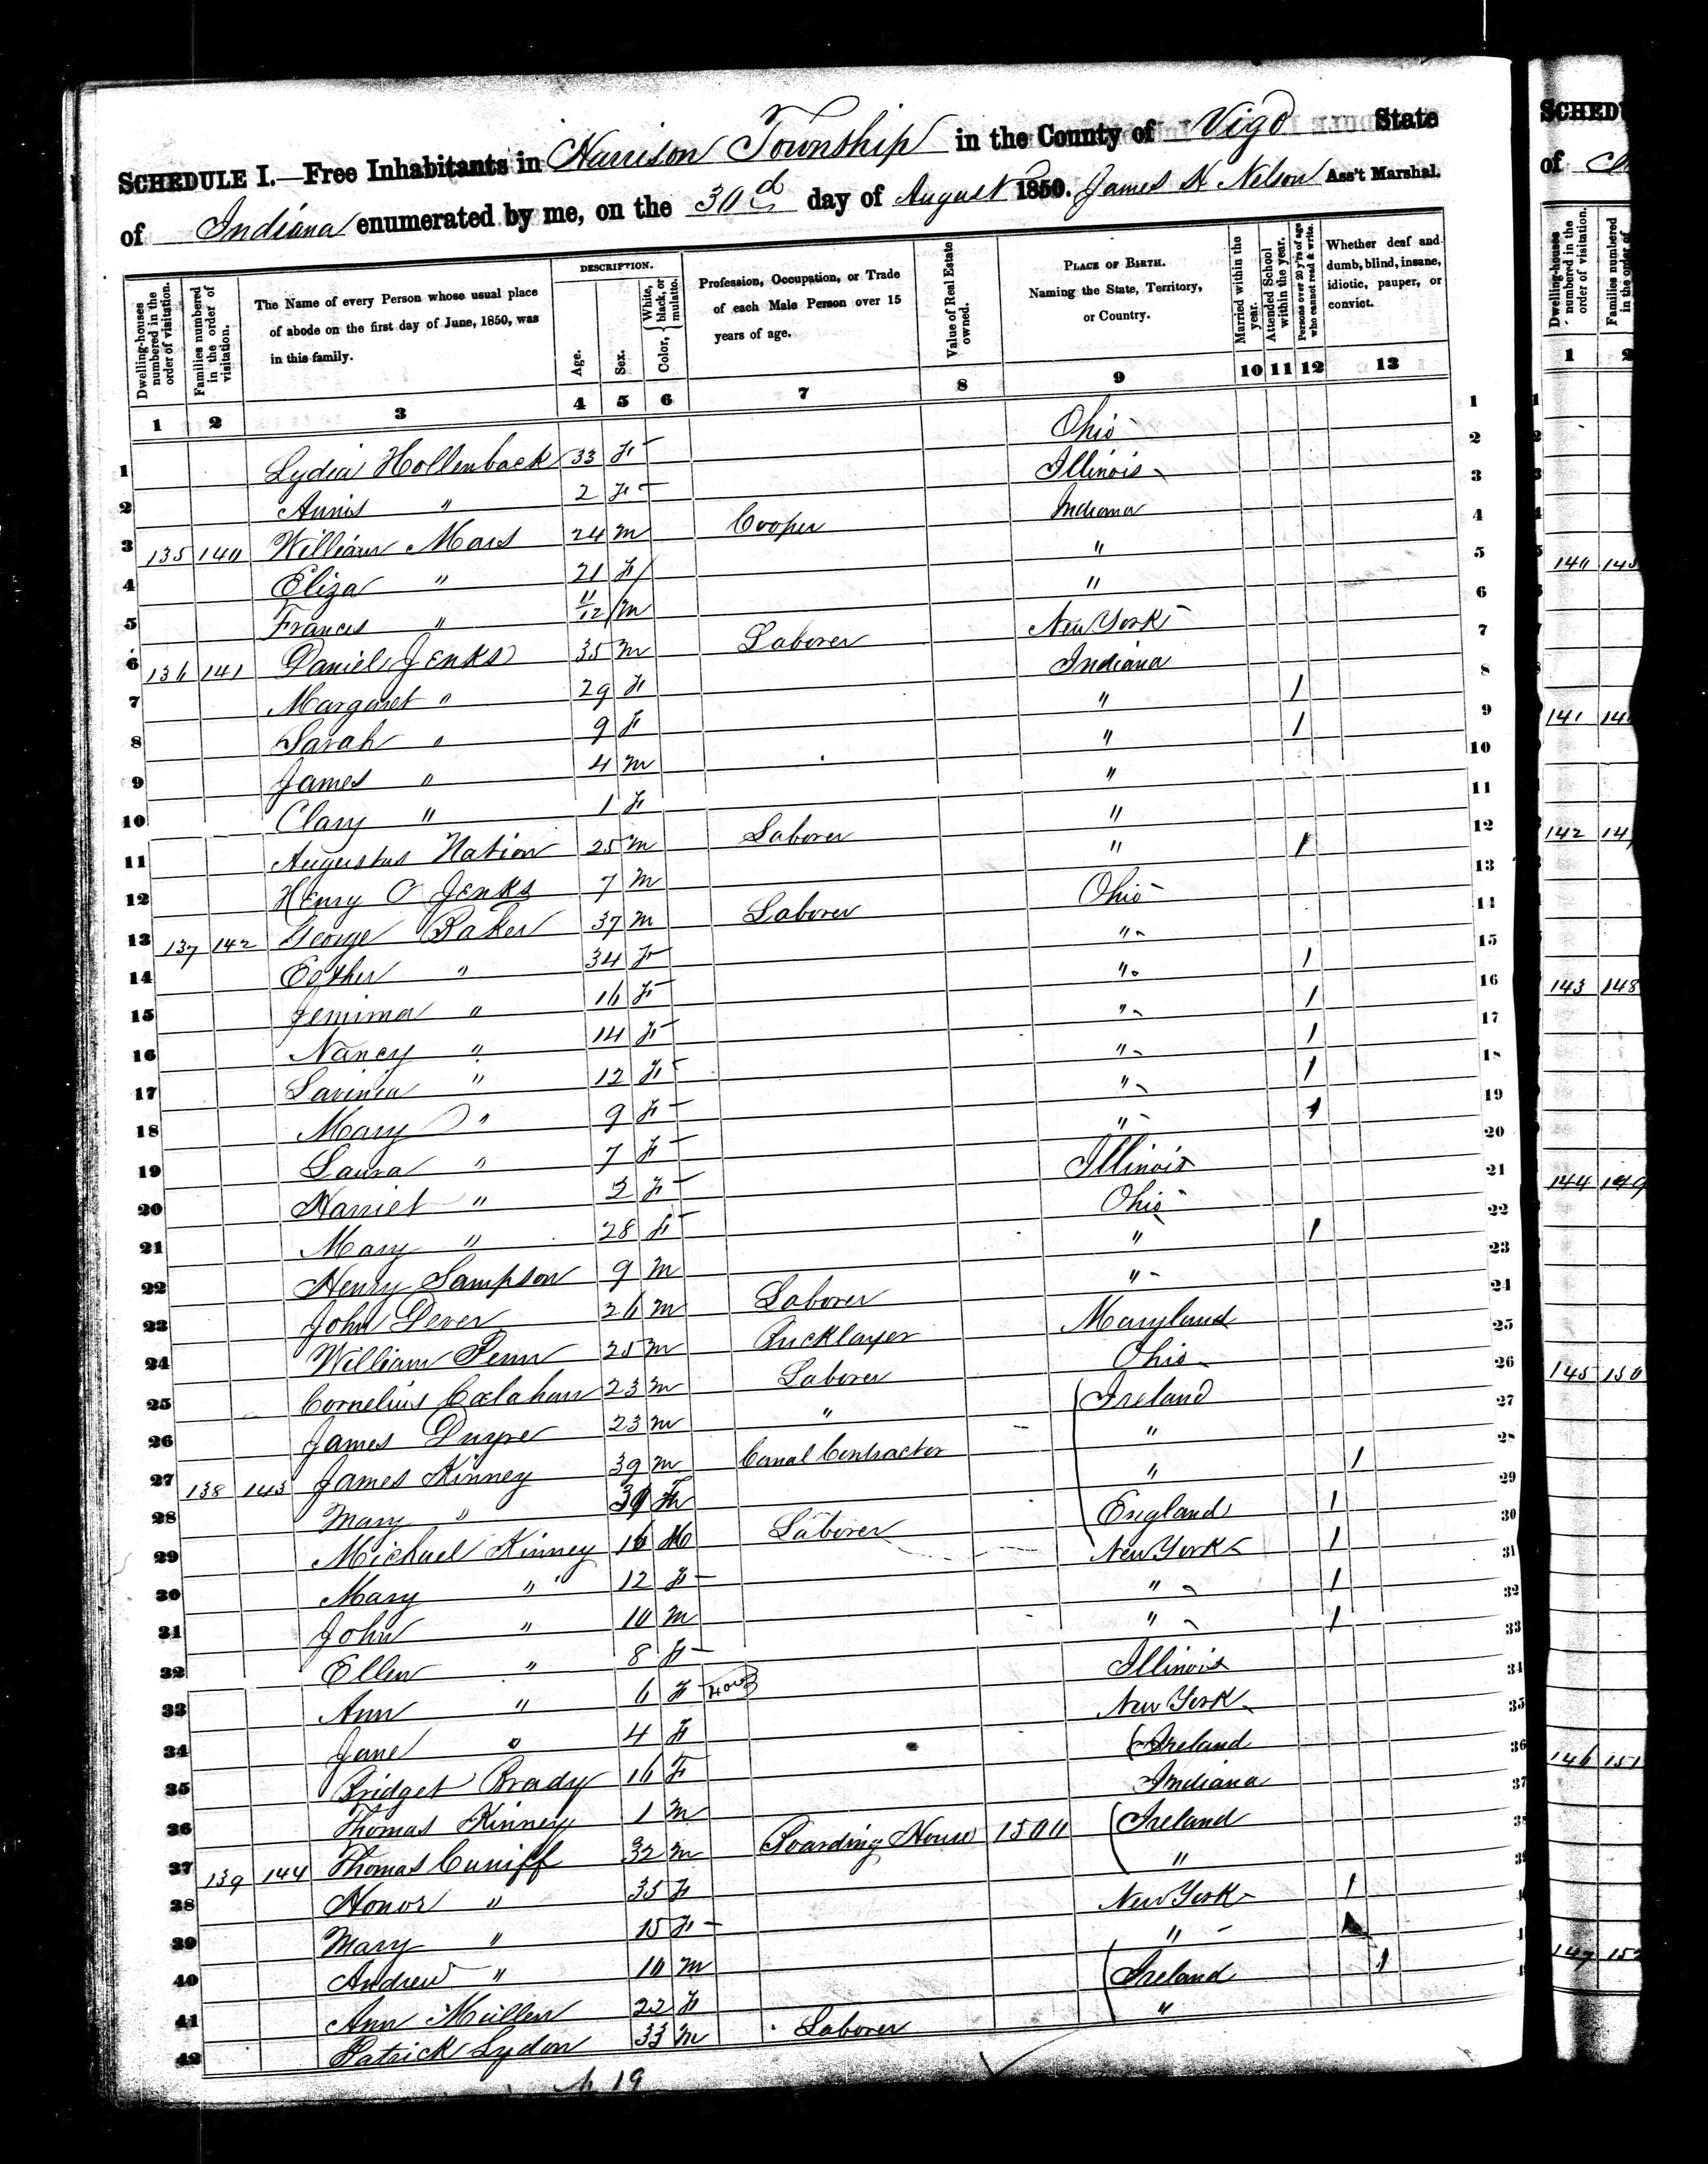 SCHEDULE I.—Free Inhabitants in Harrison Township in the County of Vigo State
of Indiana enumerated by me, on the 30d day of August 1850. James H Nelson Ass't Marshal.
Dwelling-houses numbered in the order of visitation.
Families numbered in the order of visitation.
The Name of every Person whose usual place of abode on the first day of June, 1850, was in this family.
DESCRIPTION.
Age.
Sex.
Color, { White, black, or mulatto.
Profession, Occupation, or Trade of each Male Person over 15 years of age.
Value of Real Estate owned.
PLACE OF BIRTH. Naming the State, Territory, or Country.
Married within the year.
Attended School within the year.
Persons over 20 y'rs of age who cannot read & write.
Whether deaf and dumb, blind, insane, idiotic, pauper, or convict.
1 2 3 4 5 6 7 8 9 10 11 12 13
1 Lydia Hollenback 33 F Ohio 1
2 Annis " 2 F Illinois 2
3 135 140 William Mars 24 m Cooper Indiana 3
4 Eliza " 21 F " 4
5 Frances " 11/12 m " 5
6 136 141 Daniel Jenks 35 m Laborer New York 6
7 Margaret " 29 F Indiana 7
8 Sarah " 9 F " 1 8
9 James " 4 m " 1 9
10 Clary " 1 F " 10
11 Augustus Nation 25 m Laborer " 11
12 Henry C Jenks 7 m " 1 12
13 137 142 George Baker 37 m Laborer Ohio 13
14 Esther " 34 F " 14
15 Jemima " 16 F " 1 15
16 Nancy " 14 F " 1 16
17 Lavinia " 12 F " 1 17
18 Mary " 9 F " 1 18
19 Laura " 7 F " 1 19
20 Harriet " 2 F Illinois 20
21 Mary " 28 F Ohio 21
22 Henry Sampson 9 m " 1 22
23 John Dever 26 m Laborer " 23
24 William Penn 25 m Bricklayer Maryland 24
25 Cornelius Calahan 23 m Laborer Ohio 25
26 James Dwyre 23 m " Ireland 26
27 138 143 James Kinney 39 m Canal Contractor " 27
28 Mary " 39 F " 1 28
29 Michael Kinney 16 M Laborer England 1 29
30 Mary " 12 F New York 1 30
31 John " 10 m " 1 31
32 Ellen " 8 F " 1 32
33 Ann " 6 F Illinois 33
34 Jane " 4 F New York 34
35 Bridget Brady 16 F Ireland 35
36 Thomas Kinney 1 m Indiana 36
37 139 144 Thomas Cuniff 32 m Boarding House 1500 Ireland 37
38 Honor " 35 F "
39 Mary " 15 F New York 1
40 Andrew " 10 m "
41 Ann Mullen 22 F Ireland 1
42 Patrick Lydon 33 m Laborer "
19
SCHEDU
of
Dwelling-houses numbered in the order of visitation.
Families numbered in the order of
1 2
140 145
141
142
143 148
144 149
145 150
146 151
147